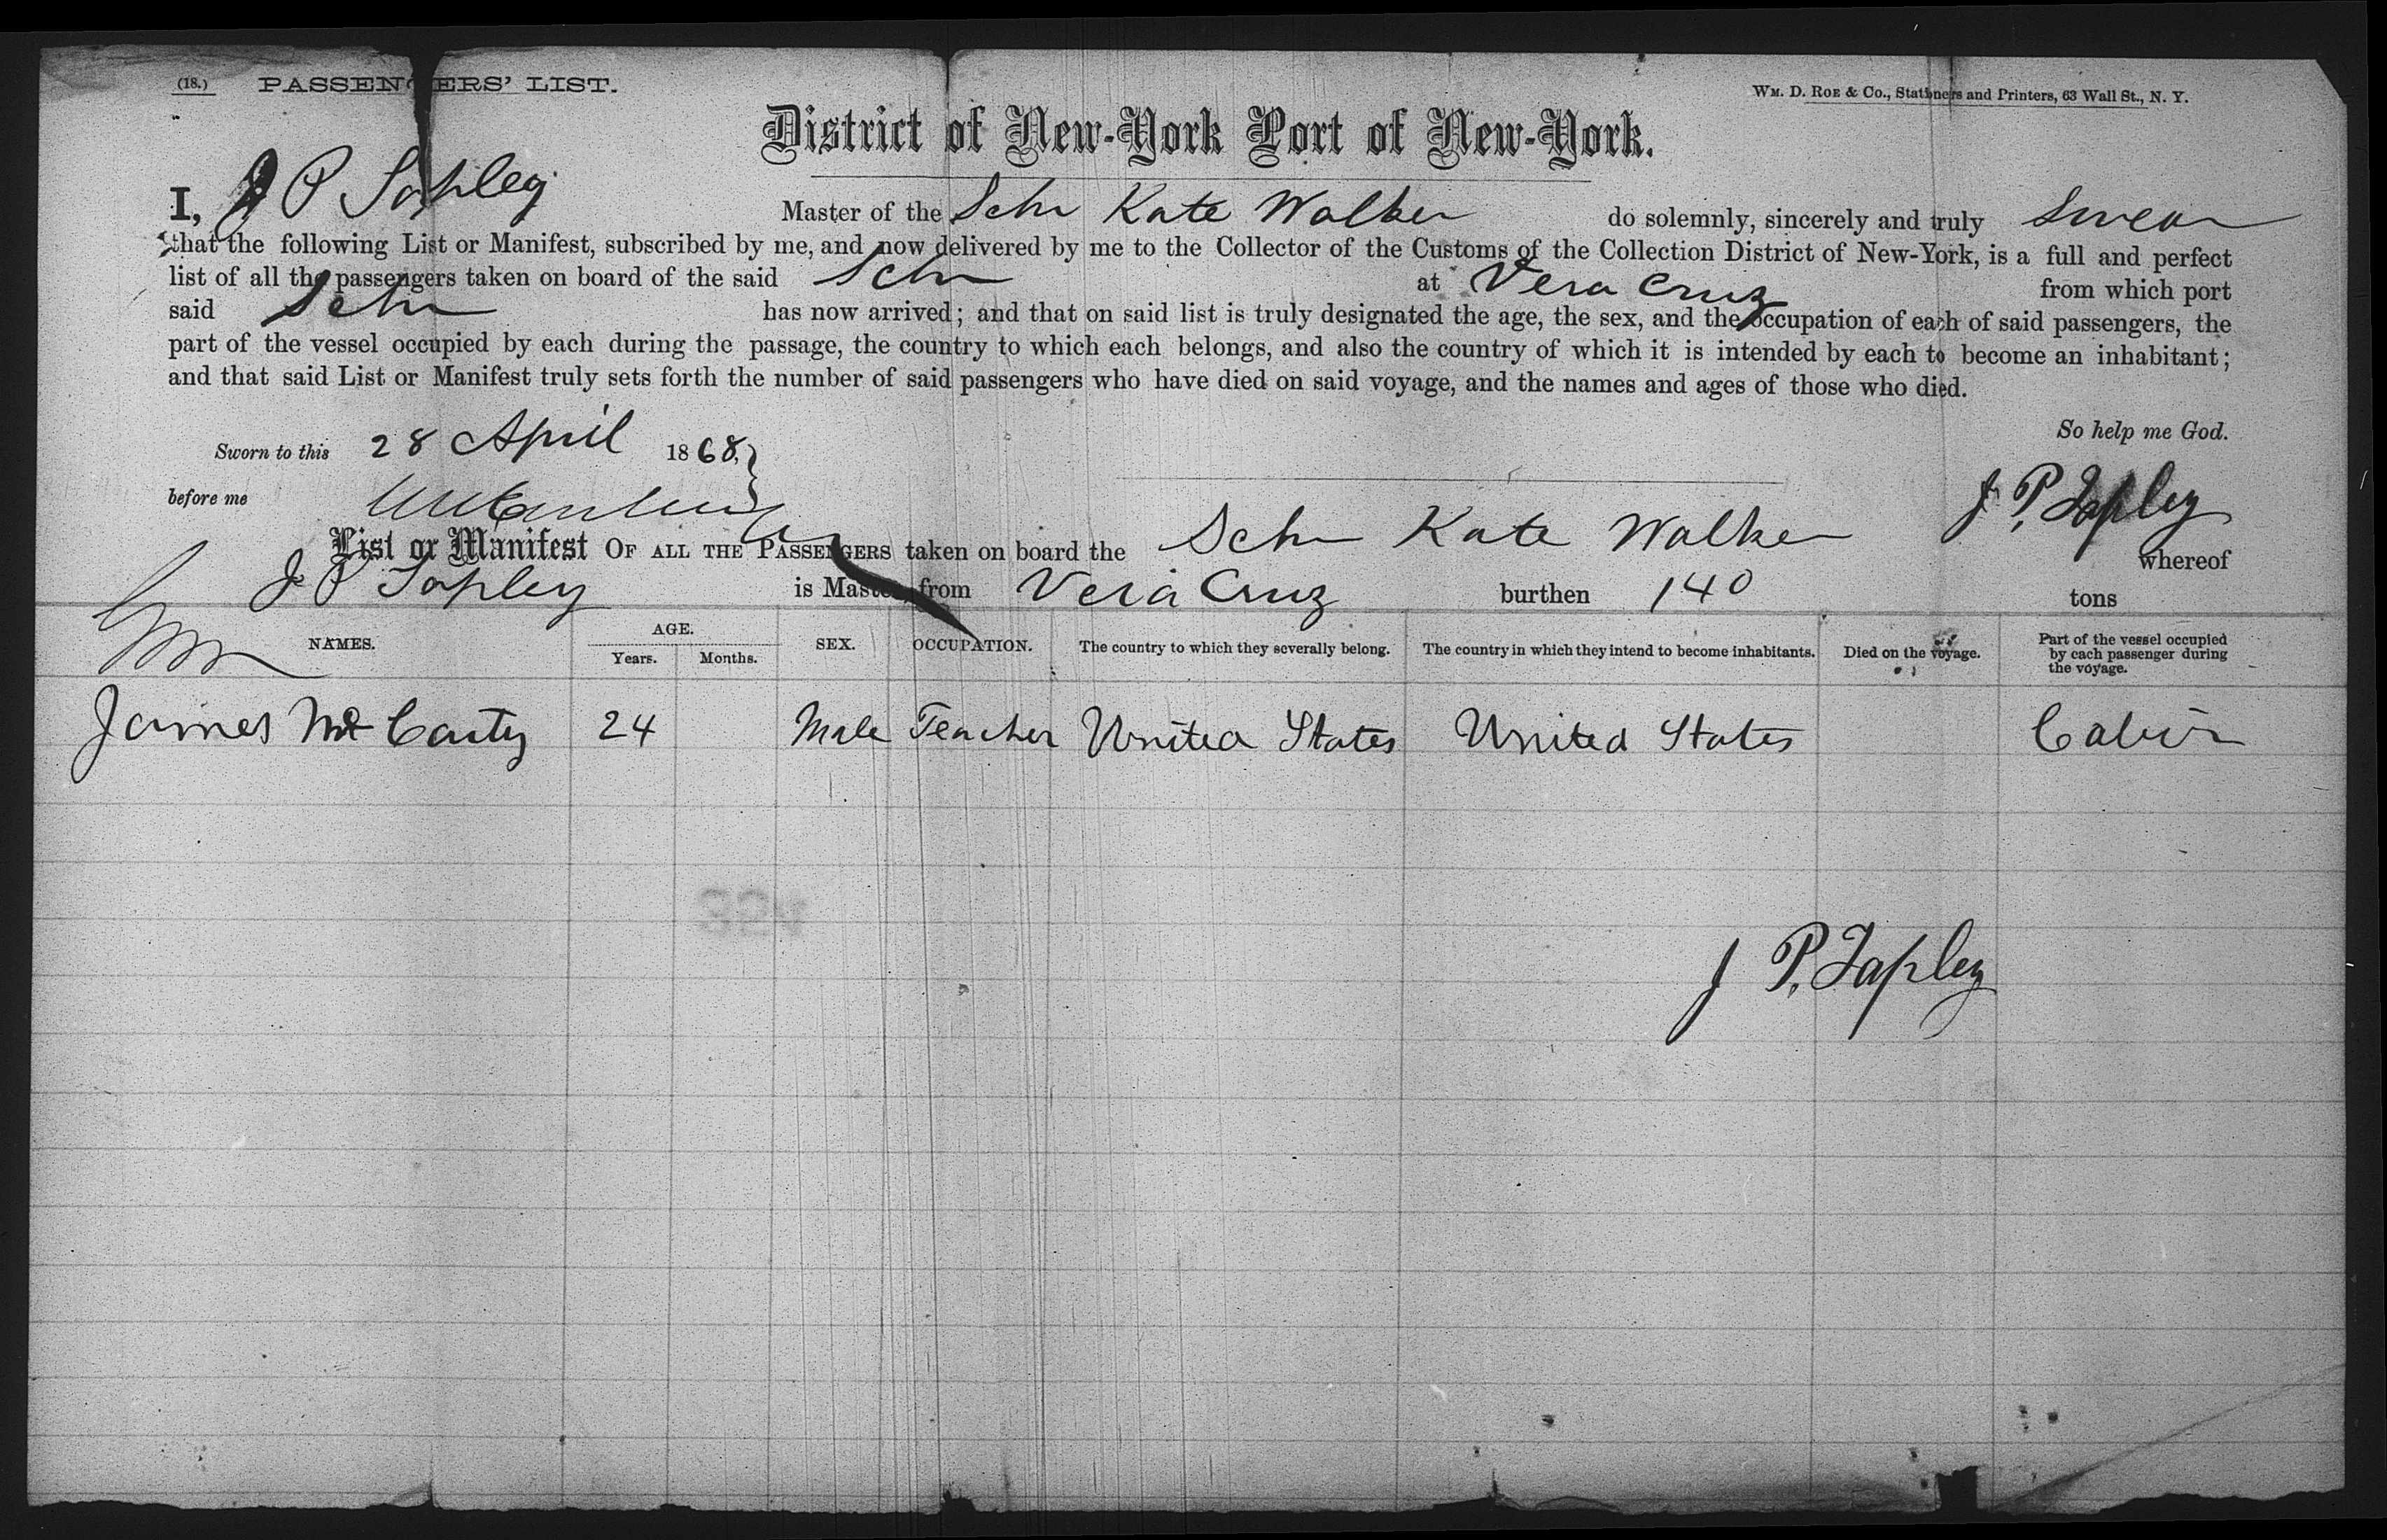 (18.) PASSENGERS' LIST.
WM. D. ROE & CO., Stationers and Printers, 63 Wall St., N. Y.
District of New-York Port of New-York.
I, J P Tapley Master of the Schr Kate Walker do solemnly, sincerely and truly swear
that the following List or Manifest, subscribed by me, and now delivered by me to the Collector of the Customs of the Collection District of New-York, is a full and perfect
list of all the passengers taken on board of the said Schr at Vera Cruz from which port
said Schr has now arrived; and that on said list is truly designated the age, the sex, and the occupation of each of said passengers, the
part of the vessel occupied by each during the passage, the country to which each belongs, and also the country of which it is intended by each to become an inhabitant;
and that said List or Manifest truly sets forth the number of said passengers who have died on said voyage, and the names and ages of those who died.
So help me God.
Sworn to this 28 April 1868,
before me
J. P. Tapley
List or Manifest OF ALL THE PASSENGERS taken on board the Schr Kate Walker whereof
J P Tapley is Master, from Vera Cruz burthen 140 tons
NAMES. AGE. Years. Months. SEX. OCCUPATION. The country to which they severally belong. The country in which they intend to become inhabitants. Died on the voyage. Part of the vessel occupied by each passenger during the voyage.
James McCarty 24 Male Teacher United States United States Cabin
J P. Tapley